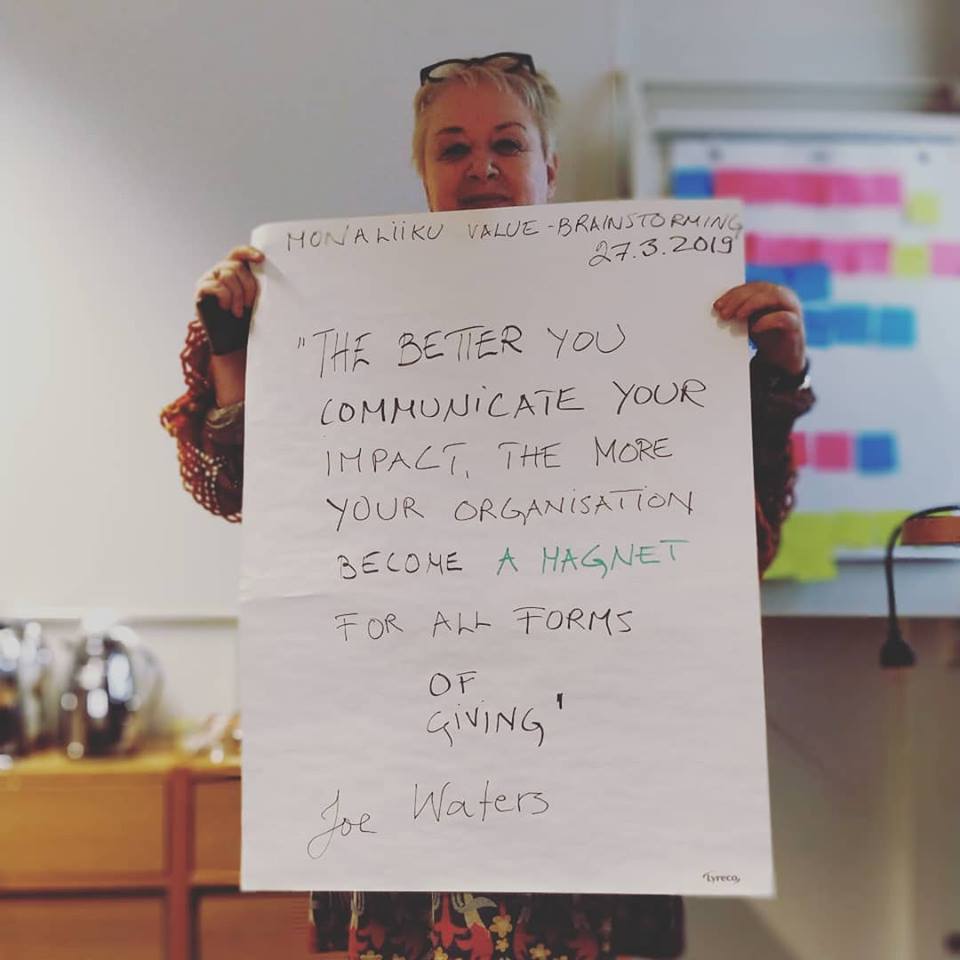 MONALIIKU VALUE-BRAINSTORMING
27.3.2019
"THE BETTER YOU
COMMUNICATE YOUR
IMPACT, THE MORE
YOUR ORGANISATION
BECOME A MAGNET
FOR ALL FORMS
OF
GIVING"
Joe Waters
Lyreco